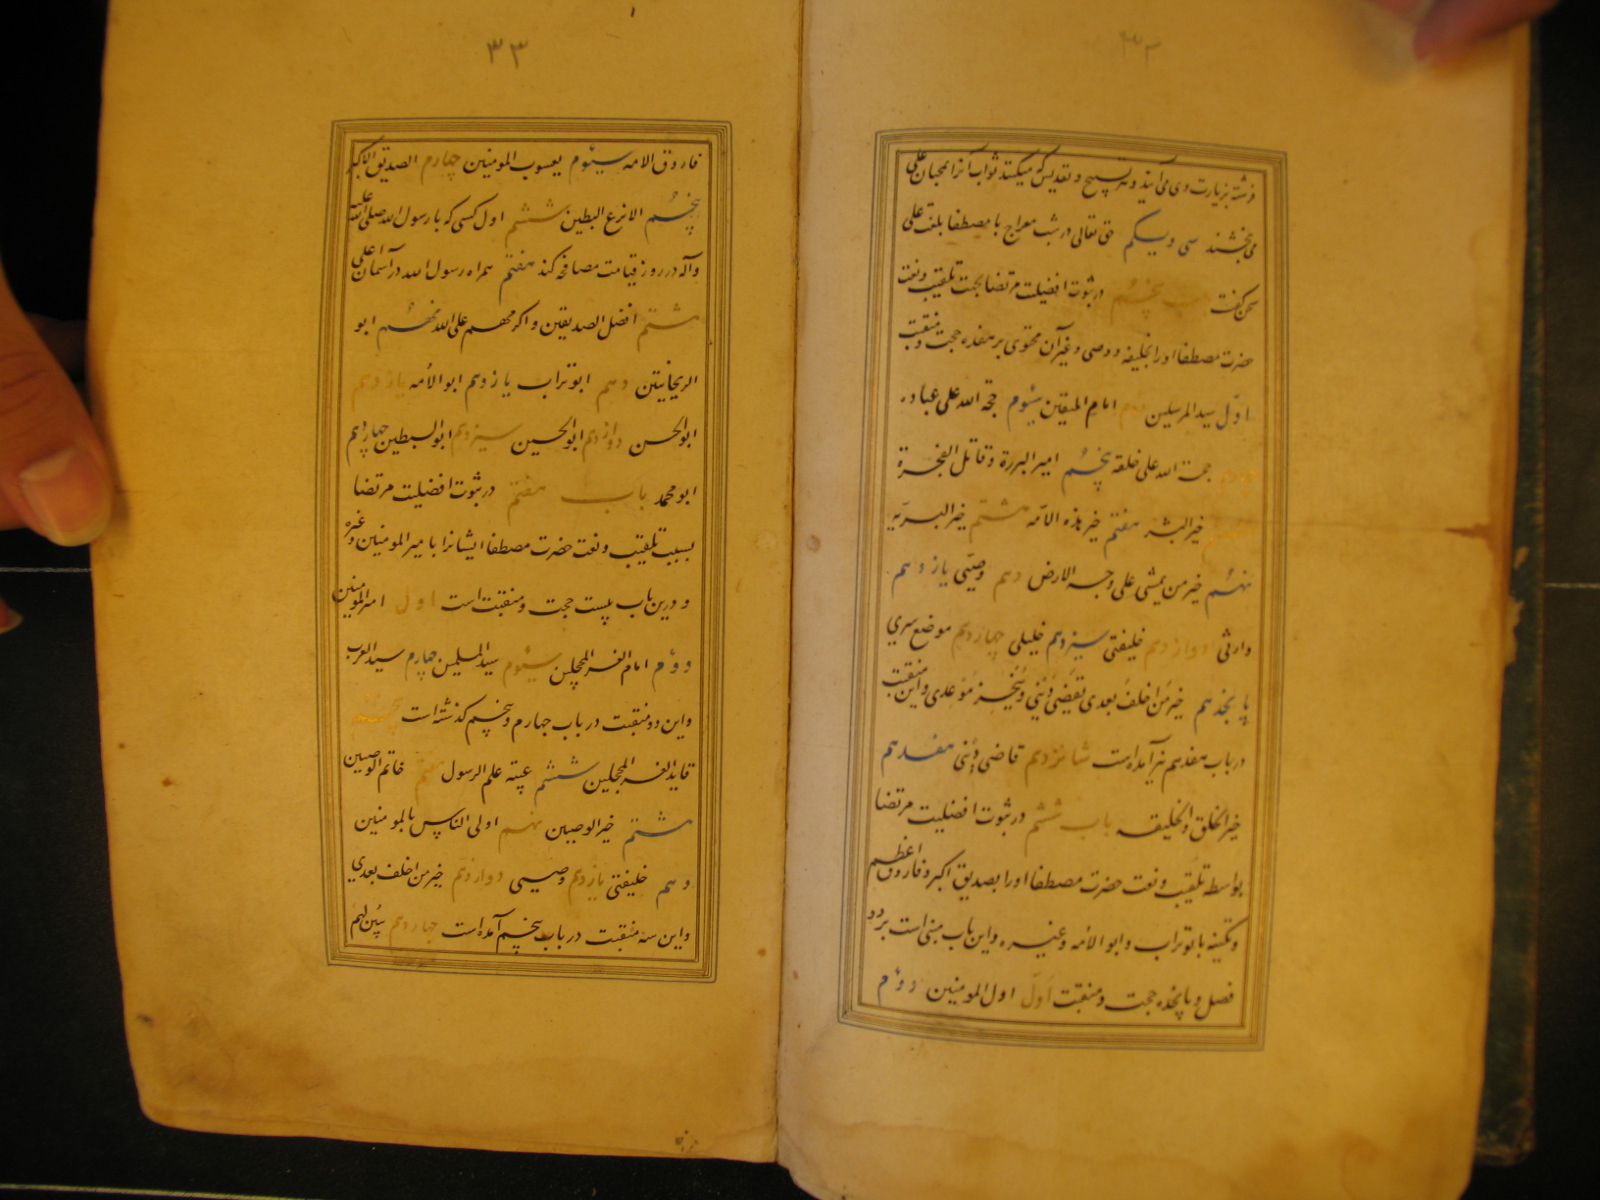 ۳۲
فرشته بزیارت وی می‌آیند و تسبیح و تقدیس که میکنند ثواب آنرا بمحبان علی
می بخشند سی و یکم حق تعالی در شب معراج با مصطفا بلغت علی
سخن گفت باب پنجم در ثبوت افضلیت مرتضا بجهت تلقیب و نعت
حضرت مصطفا او را بخلیفه و وصی و غیر آن محتوی بر هفده حجت و منقبت
اول سید المرسلین دوم امام المتقین سیوم حجة الله علی عباده
حجت الله علی خلقه پنجم امیر البررة و قاتل الفجرة
خیر البشر هفتم خیر هذه الامه هشتم خیر البریه
نهم خیر من یمشی علی وجه الارض دهم وصیی یازدهم
وارثی دوازدهم خلیفتی سیزدهم خلیلی چهاردهم موضع سری
پانجدهم خیر من اخلف بعدی تقضی دینی و تنجز موعدی و این منقبت
در باب هفدهم نیز آمده است شانزدهم قاضی دینی هفدهم
خیر الخلق و الخلیقه باب ششم در ثبوت افضلیت مرتضا
بواسطه تلقیب و نعت حضرت مصطفا او را بصدیق اکبر و فاروق اعظم
و تکنیه بابوتراب و ابو الأمه و غیره و این باب مبنی است بر دو
فصل و پانجده حجت و منقبت اول اول المومنین دوم
۳۳
فاروق الامه سیوم یعسوب المومنین چهارم الصدیق الاکبر
پنجم الانزع البطین ششم اول کسی که با رسول الله صلی الله علیه
و آله در روز قیامت مصافحه کند هفتم همراه رسول الله در آسمان اعلی
هشتم افضل الصدیقین و اکرمهم علی الله نهم ابو
الریحانیتن دهم ابوتراب یازدهم ابو الأمه یازدهم
ابو الحسن دوازدهم ابو الحسین سیزدهم ابو السبطین چهاردهم
ابو محمد باب هفتم در ثبوت افضلیت مرتضا
بسبب تلقیب و نعت حضرت مصطفا ایشانرا بامیر المومنین و غیره
و درین باب بیست حجت و منقبت است اول امیر المومنین
دوم امام الغر المحجلین سیوم سید المسلمین چهارم سید العرب
و این دو منقبت در باب چهارم و پنجم گذشته است پنجم
قاید الغر المحجلین ششم عیبه علم الرسول هفتم خاتم الوصیین
هشتم خیر الوصیین نهم اولی الناس بالمومنین
دهم خلیفتی یازدهم وصیی دوازدهم خیر من اخلف بعدی
و این سه منقبت در باب پنجم آمده است چهاردهم یبین لهم